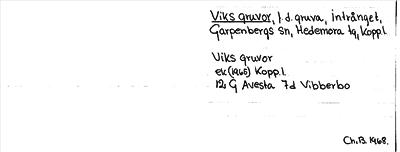 Viks gruvor, f.d. gruva, intrånget,
Garpenbergs sn, Hedemora tg, Koppl.
Viks gruvor
ek (1965) Koppl.
12 G Avesta 7d Vibberbo
Ch.B. 1968.